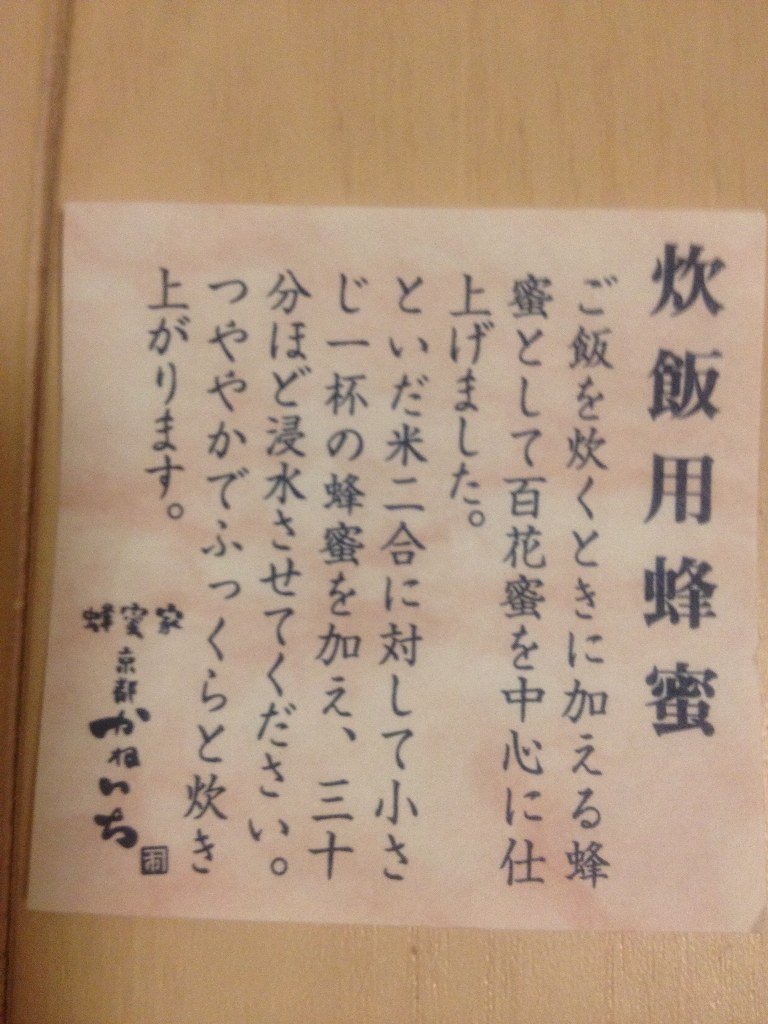 炊飯用蜂蜜
ご飯を炊くときに加える蜂
蜜として百花蜜を中心に仕
上げました。
といだ米二合に対して小さ
じ一杯の蜂蜜を加え、三十
分ほど浸水させてください。
つややかでふっくらと炊き
上がります。
蜂蜜家
京都
かねいち